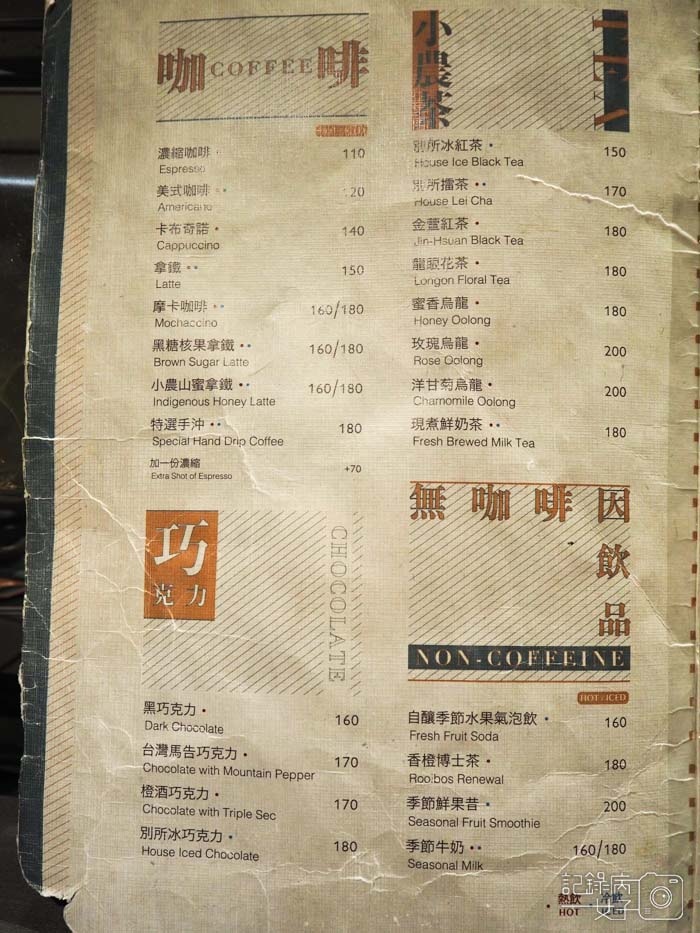 咖 COFFEE 啡
HOT / ICED
濃縮咖啡 110
Espresso
美式咖啡 120
Americano
卡布奇諾 140
Cappuccino
拿鐵 150
Latte
摩卡咖啡 160/180
Mochaccino
黑糖核果拿鐵 160/180
Brown Sugar Latte
小農山蜜拿鐵 160/180
Indigenous Honey Latte
特選手沖 180
Special Hand Drip Coffee
加一份濃縮 +70
Extra Shot of Espresso
巧克力
CHOCOLATE
黑巧克力 160
Dark Chocolate
台灣馬告巧克力 170
Chocolate with Mountain Pepper
橙酒巧克力 170
Chocolate with Triple Sec
別所冰巧克力 180
House Iced Chocolate
小農茶
別所冰紅茶 150
House Ice Black Tea
別所擂茶 170
House Lei Cha
金萱紅茶 180
Jin-Hsuan Black Tea
龍眼花茶 180
Longon Floral Tea
蜜香烏龍 180
Honey Oolong
玫瑰烏龍 200
Rose Oolong
洋甘菊烏龍 200
Chamomile Oolong
現煮鮮奶茶 180
Fresh Brewed Milk Tea
無咖啡因飲品
NON-COFFEINE
HOT / ICED
自釀季節水果氣泡飲 160
Fresh Fruit Soda
香橙博士茶 180
Rooibos Renewal
季節鮮果昔 200
Seasonal Fruit Smoothie
季節牛奶 160/180
Seasonal Milk
熱飲 冷飲
HOT ICED
記錄內
好子